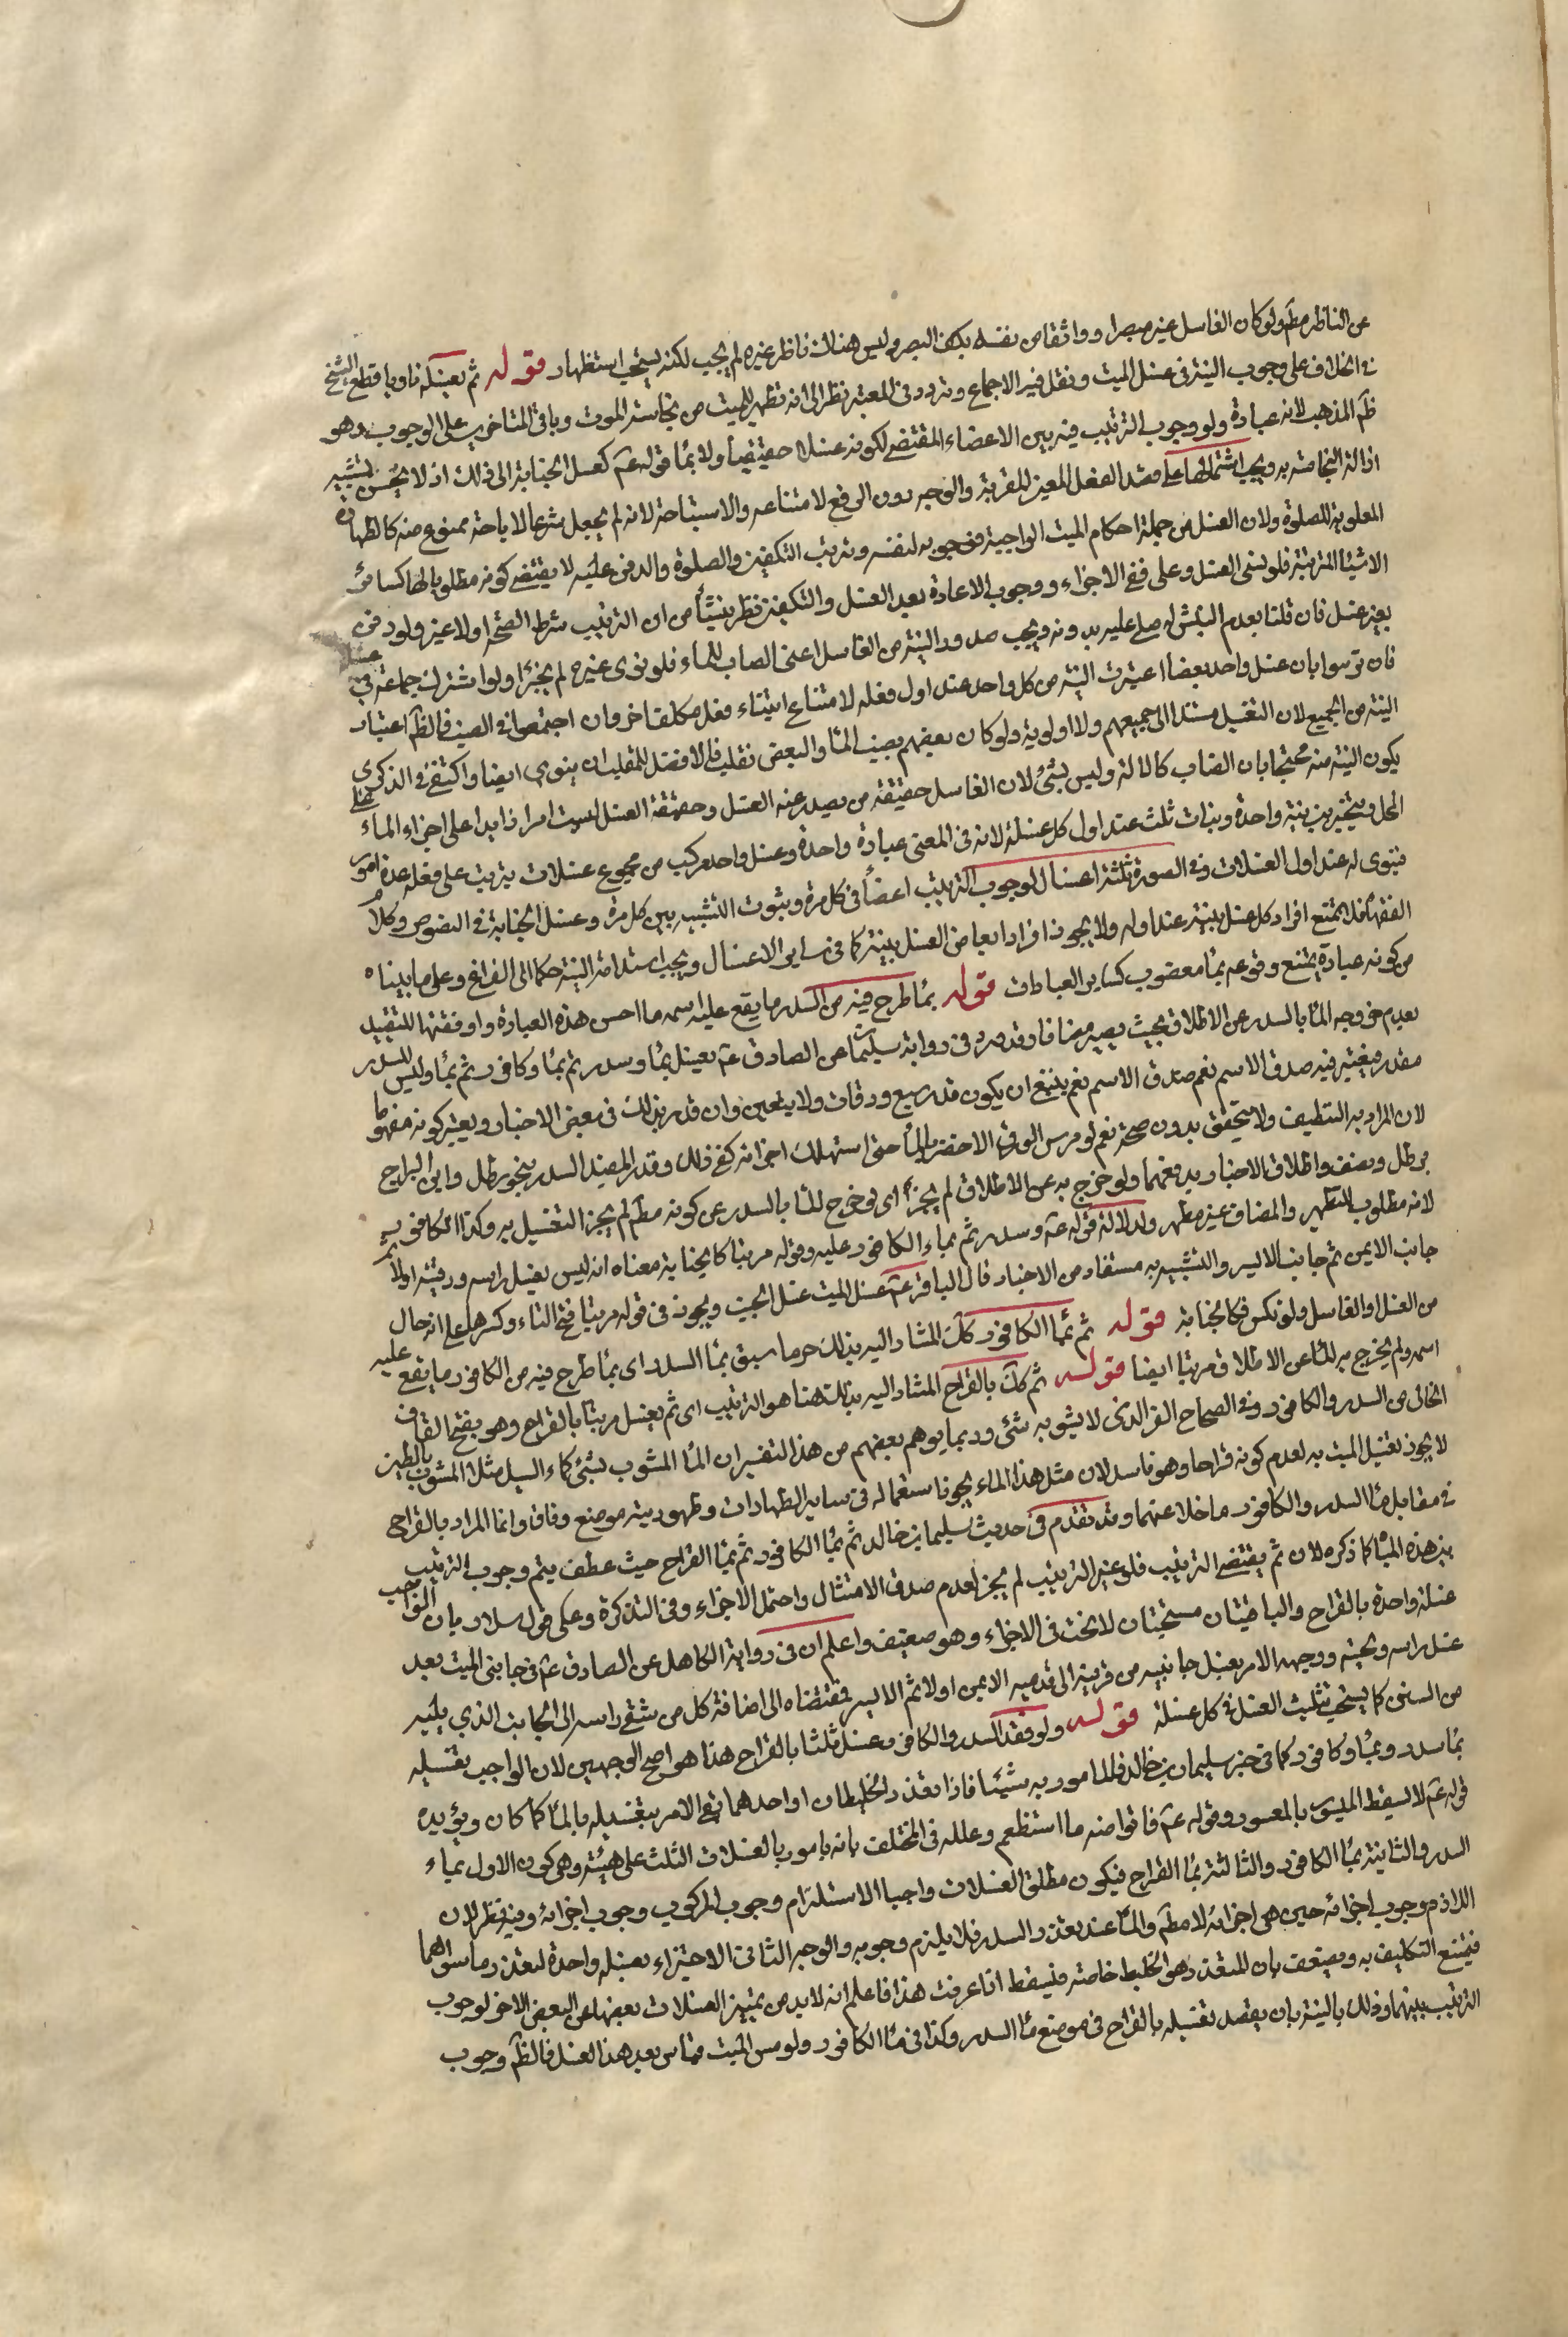 عن الناظر مطم ولو كان الغاسل غير مبصر او واثقا من نفسه بكف البصر وليس هناك ناظر غيره لم يجب لكنه يستحب استظهارا قوله ثم يغسله ناويا قطع الشيخ
في الخلاف على وجوب النية في غسل الميت ونقل فيه الاجماع وتردد في المعتبر نظرا الى انه تطهير للميت من نجاسة الموت وباقي المتاخرين على الوجوب وهو
ظم المذهب لانه عبادة ولوجوب الترتيب فيه بين الاعضاء المقتضي لكونه غسلا حقيقيا ولايماء قوله عم كغسل الجنابة الى ذلك اذ لا يحسن تشبيه
ازالة النجاسة به ويجب اشتمالها على قصد الفعل المعين للقربة والوجه دون الرفع لامتناعه والاستباحة لانه لم يجعل شرعا لاباحة ممنوع منه كالطهارة
المطلوبة للصلوة ولان الغسل من جملة احكام الميت الواجبة فوجوبه لنفسه وترتب التكفين والصلوة والدفن عليه لا يقتضي كونه مطلوبا لها كسائر
الاشياء المترتبة فلو نسي الغسل وعلى ففي الاجزاء ووجوب الاعادة بعد الغسل والتكفين نظر ينشأ من ان الترتيب شرط الصحة او لا غير ولو دفن
بغير غسل فان قلنا بعدم النبش له صلى عليه بدونه ويجب صدور النية من الغاسل اعني الصاب للماء فلو نوى غيره لم يجزء ولو اشترك جماعة في غسله
فان ترتبوا بان غسل واحد بعضا اعتبرت النية من كل واحد عند اول فعله لامتناع ابتناء فعل مكلف اخر وان اجتمعوا في الصب فالظم اعتبار
النية من الجميع لان التغسيل مستند الى جميعهم ولا اولوية ولو كان بعضهم يصب الماء والبعض يقلب فالافضل للمقلب ان ينوي ايضا واكتفى في الذكرى
يكون النية منه محتجا بان الصاب كالالة وليس بشئ لان الغاسل حقيقة من يصدر عنه الغسل وحقيقة الغسل ليست امرا زايدا على اجراء الماء على
المحل ويتخير بين نية واحدة ونيات ثلث عند اول كل غسلة لانه في المعنى عبادة واحدة وغسل واحد مركب من مجموع غسلات يترتب على فعله عدة امور
فينوي له عند اول الغسلات وفي الصورة ثلثة اغسال لوجوب الترتيب اعضاء في كل مرة وثبوت التشبيه بين كل مرة وغسل الجنابة في النصوص وكلام
الفقهاء فلا يمتنع افراد كل غسل بنية عند اوله ولا يجوز افراد ابعاض الغسل بنية كما في ساير الاغسال ويجب استدامة النية حكما الى الفراغ وعلى ما بيناه
من كونه عبادة يمتنع وقوعه بماء مغصوب كساير العبادات قوله بماء طرح فيه من السدر ما يقع عليه اسمه ما احسن هذه العبارة واوفقها للتقييد
بعدم خروجه الماء بالسدر عن الاطلاق بحيث يصير مضافا وقد ورد في رواية سليمان عن الصادق عم يغسل بماء وسدر ثم بماء وكافور ثم بماء وليس للسدر
مقدر فيعتبر فيه صدق الاسم نعم صدق الاسم نعم ينبغي ان يكون قدر سبع ورقات ولا يتعين وان قدر بذلك في بعض الاخبار ويعتبر كونه مفهوما
لان المراد به التنظيف ولا يتحقق بدون صحته نعم لو مرس الورق الاخضر بالماء حتى استهلك اجزائه كفى ذلك وقدر المفيد السدر بنحو رطل وابن البراج
برطل ونصف واطلاق الاخبار يدفعهما ولو خرج به عن الاطلاق لم يجز اي لو خرج الماء بالسدر عن كونه مطم لم يجز التغسيل به وكذا الكافور
لانه مطلوب للتطهير والمضاف غير مطهر ولدلالة قوله عم وسدر ثم بماء الكافور عليه وقوله مرتبا كالجنابة معناه انه ليس يغسل راسه ورقبته اولا ثم
جانب الايمن ثم جانب الايسر والتشبيه به مستفاد من الاخبار قال الباقر عم غسل الميت غسل الجنب ويجوز في قوله مرتبا فتح التاء وكسرها على انه حال
من الغسل او الغاسل ولو نكس فكالجنابة قوله ثم بماء الكافور كك المشار اليه بذلك حر ما سبق بماء السدر اي بماء طرح فيه من الكافور ما يقع عليه
اسمه ولم يخرج به الماء عن الاطلاق مرتبا ايضا قوله ثم كك بالقراح المشار اليه بذلك هنا هو الترتيب اي ثم يغسل مرتبا بالقراح وهو بفتح القاف
الخالي من السدر والكافور وفي الصحاح القر الذي لا يشوبه شئ وربما يوهم بعضهم من هذا التفسير ان الماء المشوب بشئ كماء السيل مثلا المشوب بالطين
لا يجوز تغسيل الميت به لعدم كونه قراحا وهو فاسد لان مثل هذا الماء يجوز استعماله في ساير الطهارات وطهوريته موضع وفاق وانما المراد بالقراح
في مقابل ماء السدر والكافور ما خلا عنهما وقد تقدم في حديث سليمان بن خالد ثم بماء الكافور ثم بماء القراح حيث عطف بثم وجوب الترتيب
بين هذه المياه كما ذكره لان ثم يقتضي الترتيب فلو غير الترتيب لم يجز لعدم صدق الامتثال واحتمل الاجزاء وفي التذكرة وحكى قول سلار بان الواجب
غسلة واحدة بالقراح والباقيتان مستحبتان لا بحث في الاجزاء وهو ضعيف واعلم ان في رواية الكاهلي عن الصادق عم في جانبي الميت بعد
غسل راسه ولحيته ووجهه الامر بغسل جانبيه من قرنيه الى قدميه الايمن اولا ثم الايسر فمقتضاه الى اضافة كل من شقي راسه الى الجانب الذي يليه
من السنن كما يستحب تثليث الغسل في كل غسلة قوله ولو فقد السدر والكافور غسل ثلثا بالقراح هذا هو اصح الوجهين لان الواجب تغسيله
بماء سدر وبماء وكافور كما في خبر سليمان بن خالد فالمامور به شيئا فاذا تعذر الخليطان او احدهما بقي الامر بتغسيله بالماء كما كان ويؤيده
قوله عم لا يسقط الميسور بالمعسور وقوله عم فاتوا منه ما استطعتم وعلله في المختلف بانه مامور بالغسلات الثلث على هيئة وهي كون الاول بماء
السدر والثانية بماء الكافور والثالثة بماء القراح فيكون مطلق الغسلات واجبا الاستلزام وجوب المركب وجوب اجزائه وفيه نظر لان
اللازم وجوب اجزائه حين هي اجزائه لا مطم والماء عند تعذر السدر فلا يلزم وجوبه والوجه الثاني الاجتزاء بغسله واحدة لتعذر ما سواها
فيمتنع التكليف به ويضعف بان المتعذر هو الخليط خاصة فيسقط اذا عرفت هذا فاعلم انه لابد من تمييز الغسلات بعضها عن البعض الاخر لوجوب
الترتيب بينهما وذلك بالنية بان يقصد تغسيله بالقراح في موضع ماء السدر وكذا في ماء الكافور ولو مس الميت مماس بعد هذا الغسل فالظم وجوب